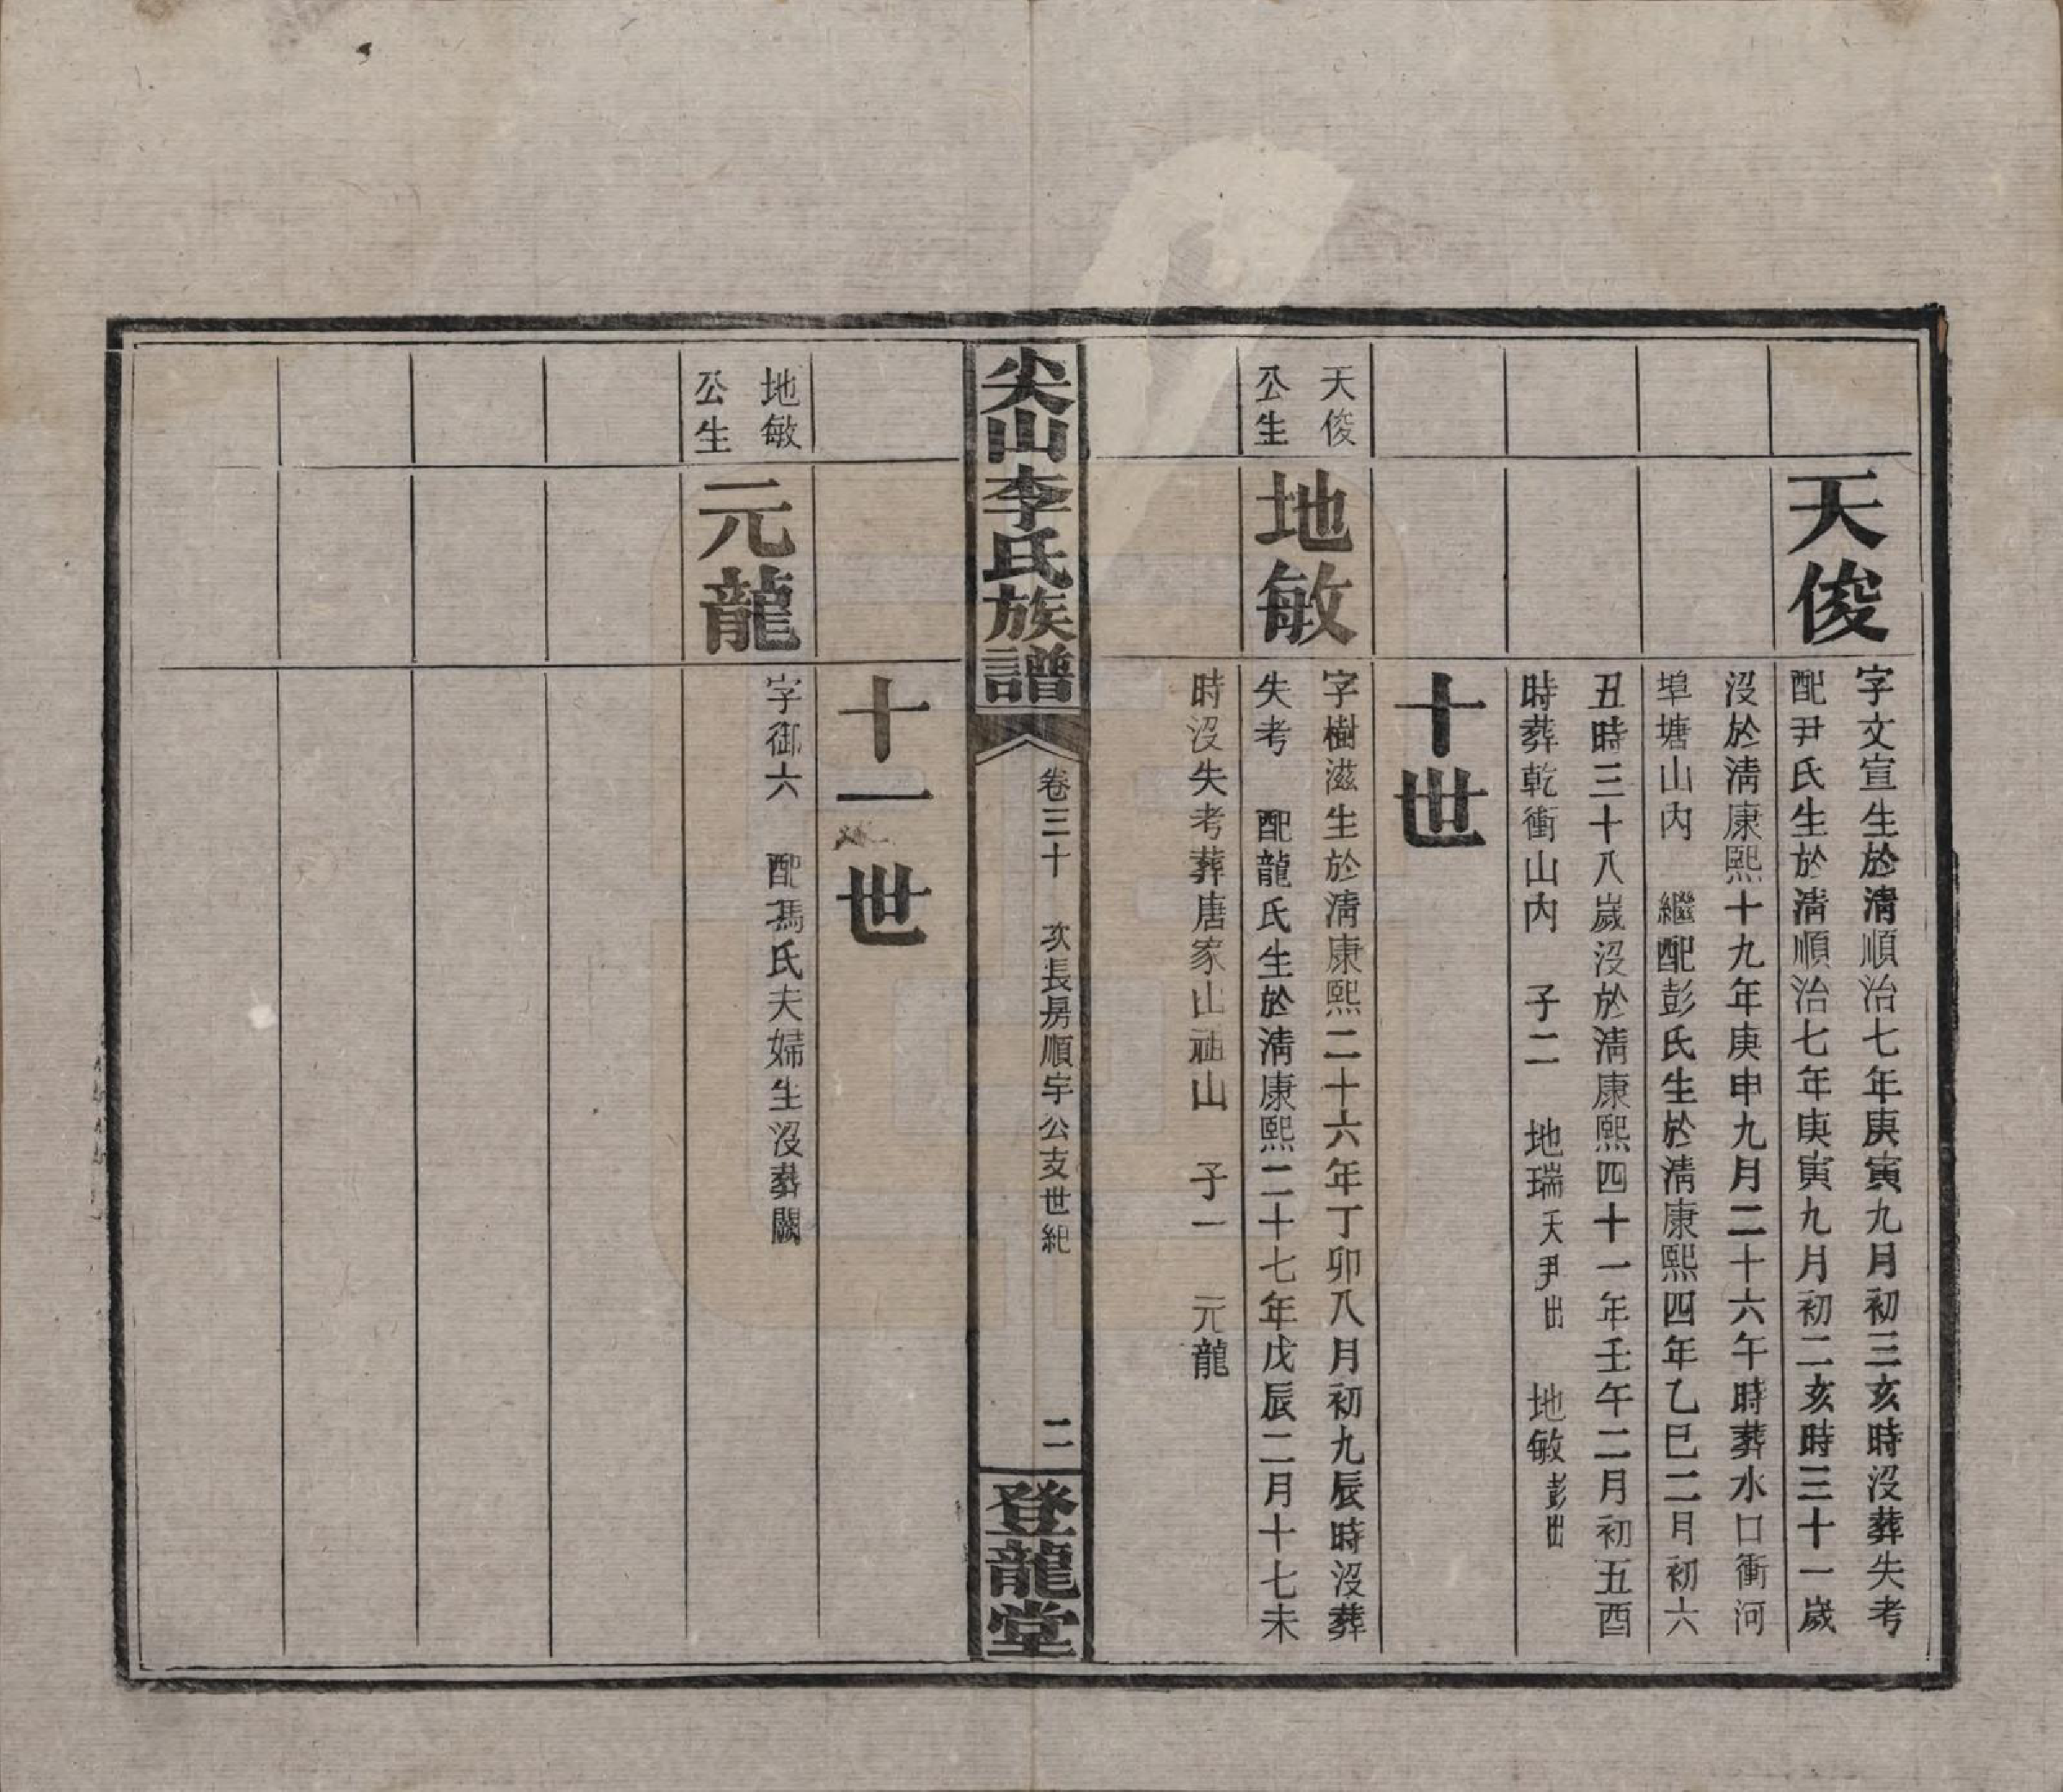 天俊
字文宣生於淸順治七年庚寅九月初三亥時沒葬失考
配尹氏生於淸順治七年庚寅九月初二亥時三十一歲
沒於淸康熙十九年庚申九月二十六午時葬水口衝河
埠塘山內　繼配彭氏生於淸康熙四年乙巳二月初六
丑時三十八歲沒於淸康熙四十一年壬午二月初五酉
時葬乾衝山內　子二　地瑞天尹出　地敏彭出
十世
天俊
公生
地敏
字樹滋生於淸康熙二十六年丁卯八月初九辰時沒葬
失考　配龍氏生於淸康熙二十七年戊辰二月十七未
時沒失考葬唐家山祖山　子一　元龍
尖山李氏族譜
卷三十　次長房順宇公支世紀
二
登龍堂
十一世
地敏
公生
元龍
字御六　配馮氏夫婦生沒葬闕